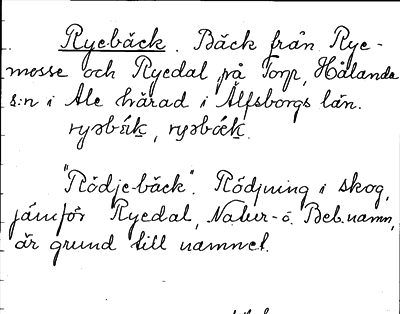 Ryebäck. Bäck från Rye-
mosse och Ryedal på Torp, Hålanda
s:n i Ale härad i Älfsborgs län.
ryəbäk, ryəbäk.
"Rödjebäck". Rödjning i skog,
jämför Ryedal, Natur- o. Beb.namn,
är grund till namnet.